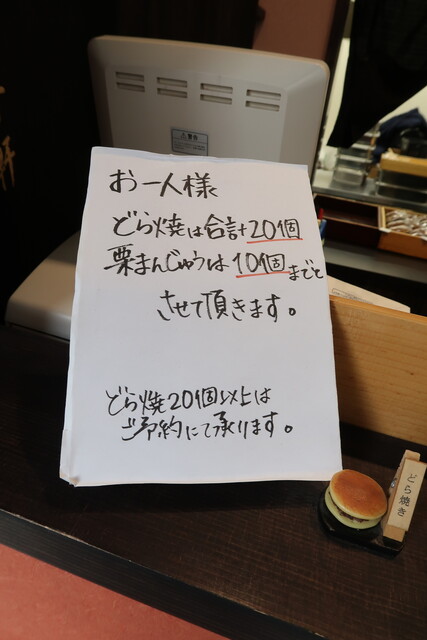 お一人様
どら焼は合計20個
栗まんじゅうは10個までと
させて頂きます。
どら焼20個以上は
ご予約にて承ります。
どら焼き